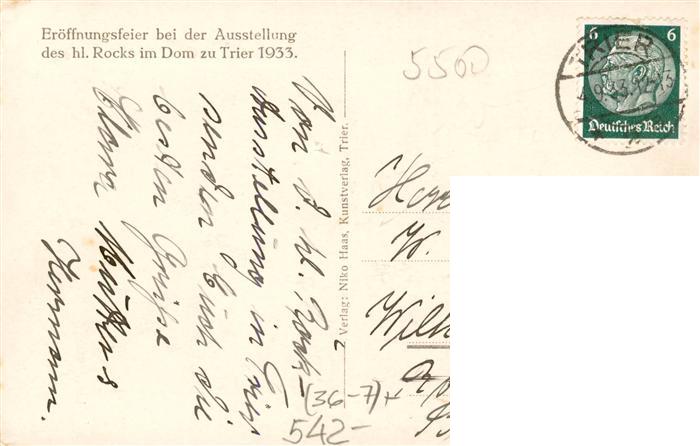 Eröffnungsfeier bei der Ausstellung
des hl. Rocks im Dom zu Trier 1933.
5500
6 6
TRIER
Deutsches Reich
Von d. hl. Rock-
Ausstellung in Trier
senden Euch die
besten Grüße
Mutter
Hermann.
2 Verlag: Niko Haas, Kunstverlag, Trier.
W.
Wilh
(36-7)+
542-